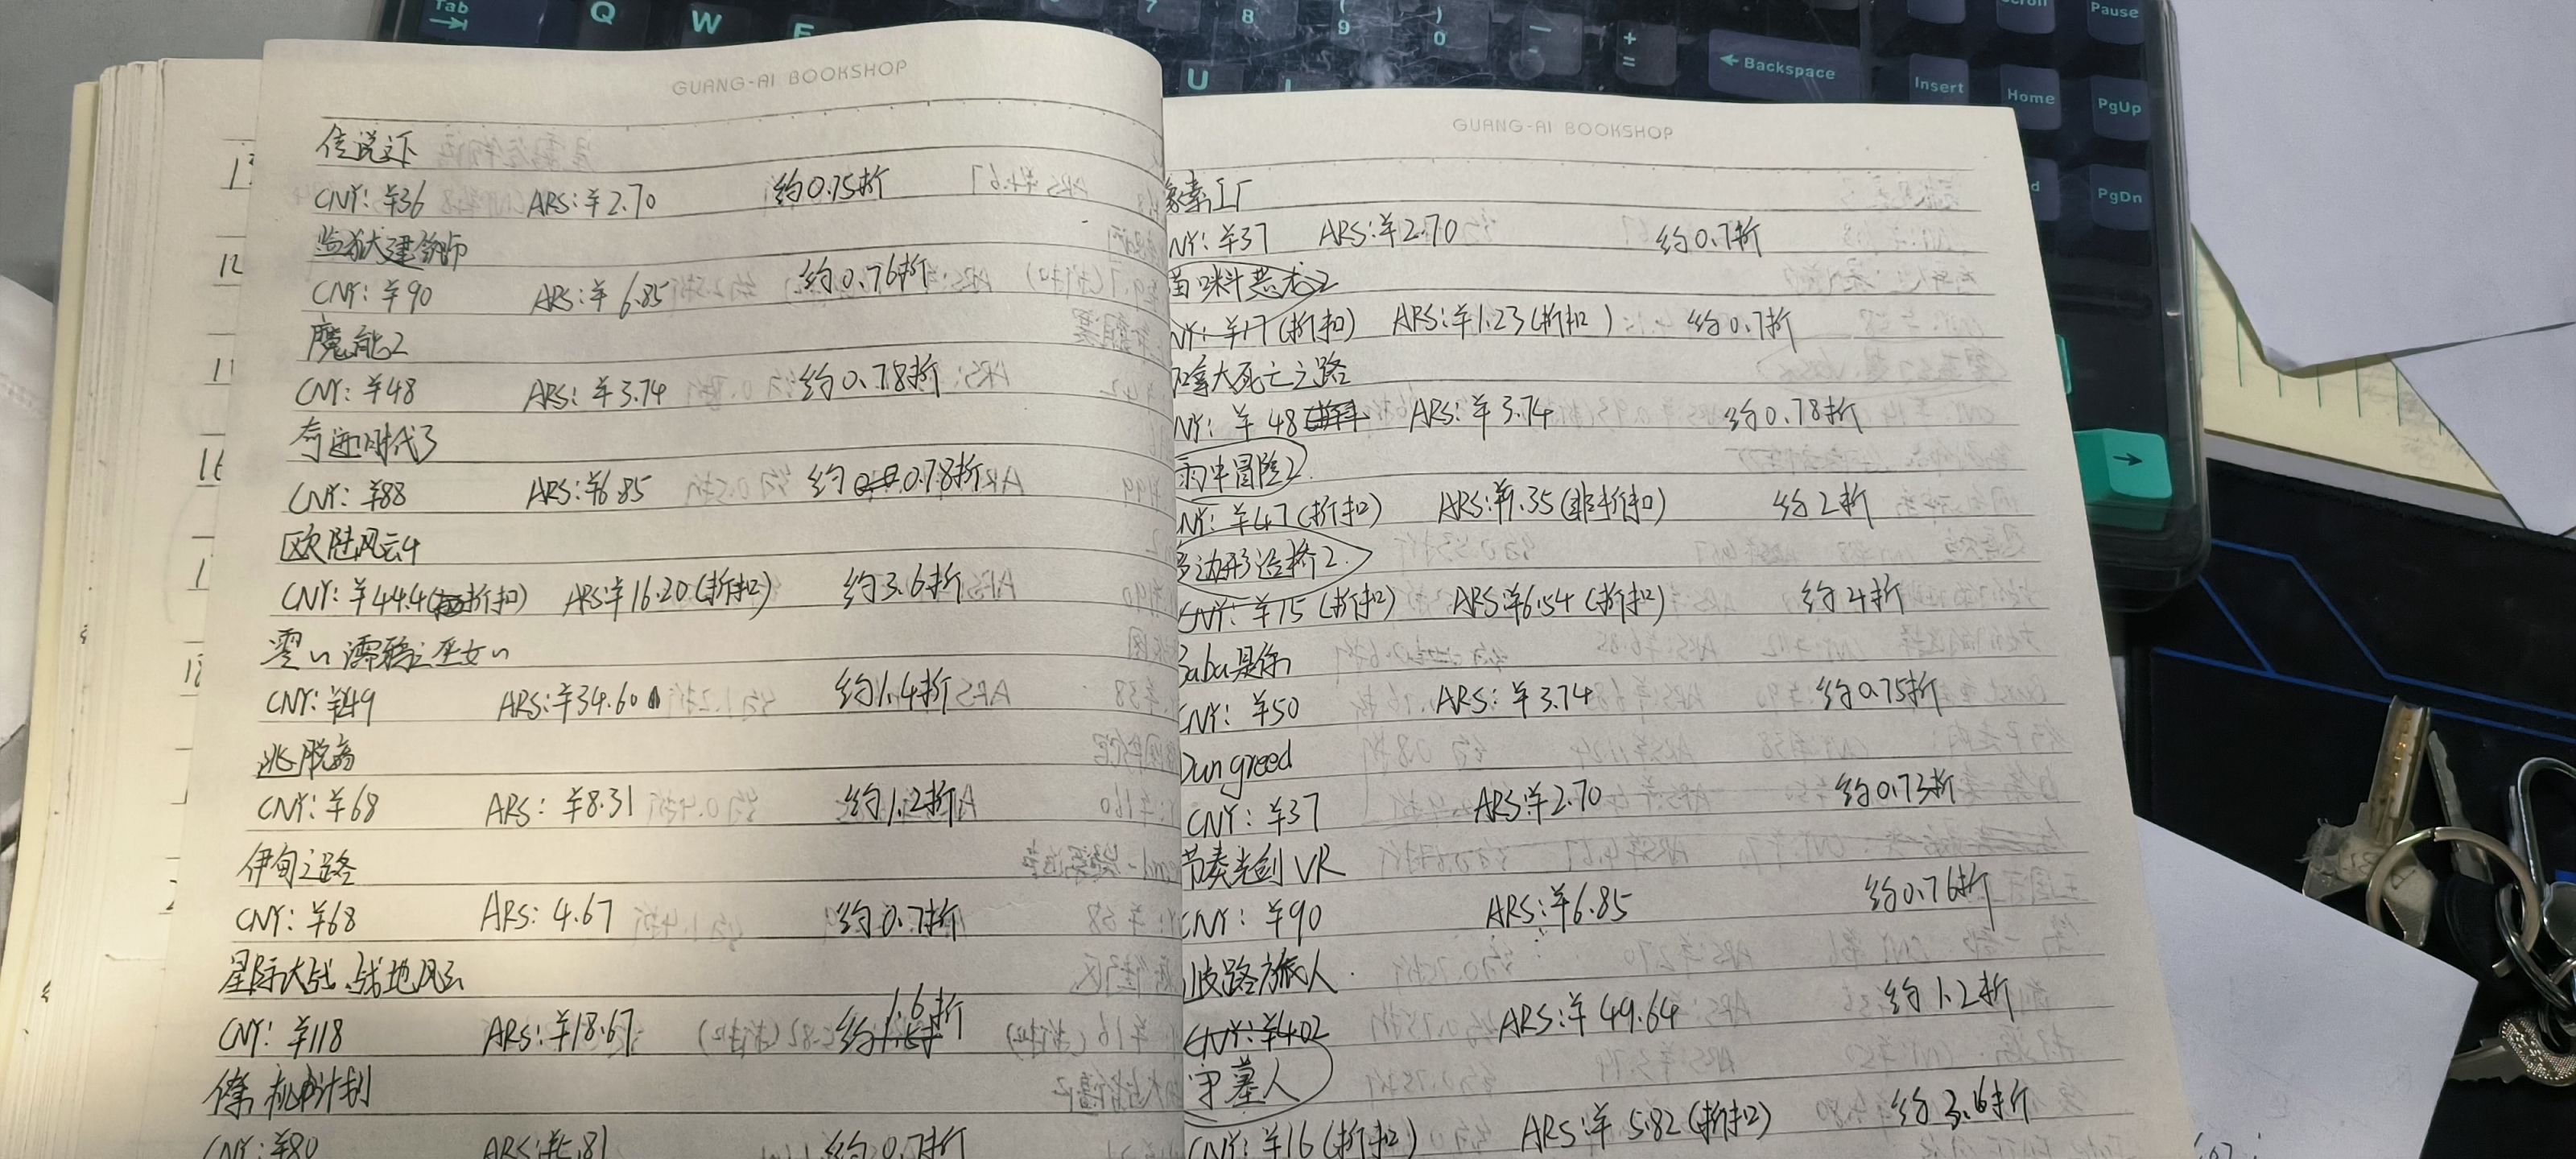 GUANG-AI BOOKSHOP
传说之下
CNY: ¥36 ARS: ¥2.70 约0.75折
监狱建筑师
CNY: ¥90 ARS: ¥6.85 约0.76折
魔能2
CNY: ¥48 ARS: ¥3.74 约0.78折
奇迹时代3
CNY: ¥88 ARS: ¥6.85 约0.78折
欧陆风云4
CNY: ¥44.4(折扣) ARS: ¥16.20(折扣) 约3.6折
CNY: ¥49 ARS: ¥34.60 约1.4折
逃脱者
CNY: ¥68 ARS: ¥8.31 约1.2折
伊甸之路
CNY: ¥68 ARS: 4.67 约0.7折
星际大战 战地风云
CNY: ¥118 ARS: ¥18.67 约1.6折
CNY: ¥80 约0.7折
GUANG-AI BOOKSHOP
像素工厂
NY: ¥37 ARS: ¥2.70 约0.7折
喵咪斗恶龙2
NY: ¥17(折扣) ARS: ¥1.23(折扣) 约0.7折
加拿大死亡之路
NY: ¥48 ARS: ¥3.74 约0.78折
雨中冒险2
NY: ¥47(折扣) ARS: ¥9.35(非折扣) 约2折
多边形造桥2
CNY: ¥15(折扣) ARS: ¥6.54(折扣) 约4折
Baba是你
CNY: ¥50 ARS: ¥3.74 约0.75折
Dungreed
CNY: ¥37 ARS: ¥2.70 约0.73折
节奏光剑VR
CNY: ¥90 ARS: ¥6.85 约0.76折
歧路旅人
CNY: ¥402 ARS: ¥49.64 约1.2折
守墓人
CNY: ¥16(折扣) ARS: ¥5.82(折扣) 约3.6折
Tab
Q
W
E
U
I
7
8
9
0
Backspace
Insert
Home
PgUp
PgDn
Pause